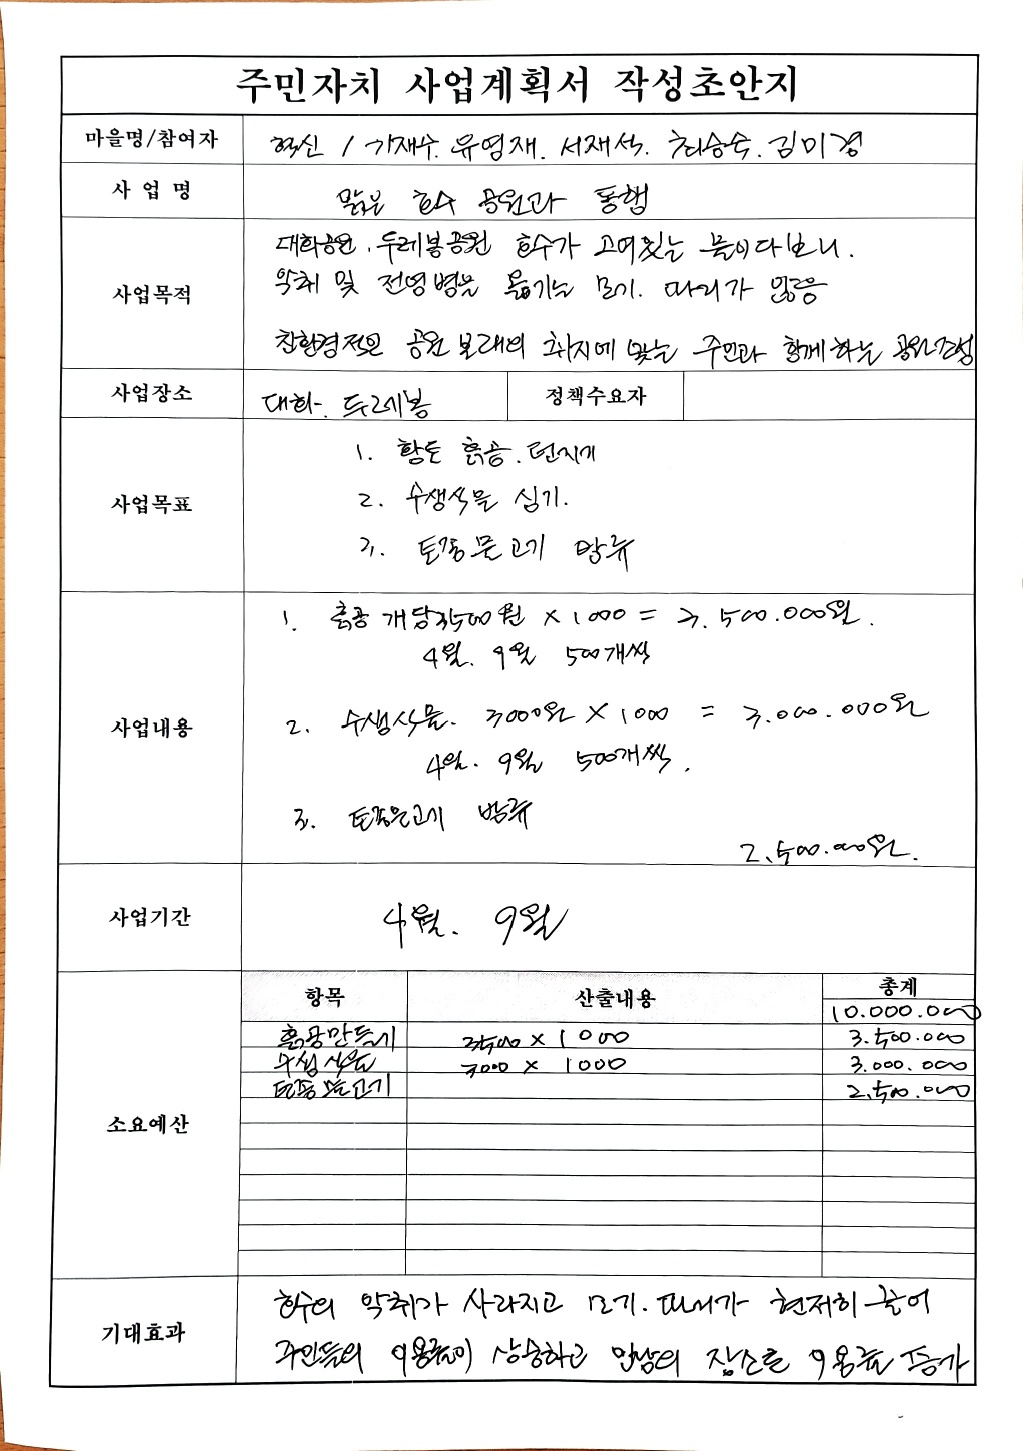 주민자치 사업계획서 작성초안지
마을명/참여자 혁신 / 기재수. 유영재. 서재석. 최승숙. 김미경
사 업 명 맑은 호수 공원과 동행
대화공원. 두레봉공원 호수가 고여있는 물이다보니.
사업목적 악취 및 전염병을 옮기는 모기. 파리가 많음
친환경적인 공원 본래의 취지에 맞는 주민과 함께하는 공원조성
사업장소 대화. 두레봉 정책수요자
1. 황토 흙공. 던지기
사업목표 2. 수생식물 심기.
3. 토종물고기 방류
1. 흙공 개당 3500원 × 1000 = 3.500.000원.
4월. 9월 500개씩
사업내용 2. 수생식물. 3000원 × 1000 = 3.000.000원
4월. 9월 500개씩.
3. 토종물고기 방류
2.500.000원.
사업기간 4월. 9월
항목 산출내용 총계
10.000.000
흙공만들기 3500 × 1000 3.500.000
수생식물 3000 × 1000 3.000.000
토종물고기 2.500.000
소요예산
호수의 악취가 사라지고 모기. 파리가 현저히 줄어
기대효과 주민들의 이용률이 상승하고 만남의 장소로 이용률 증가